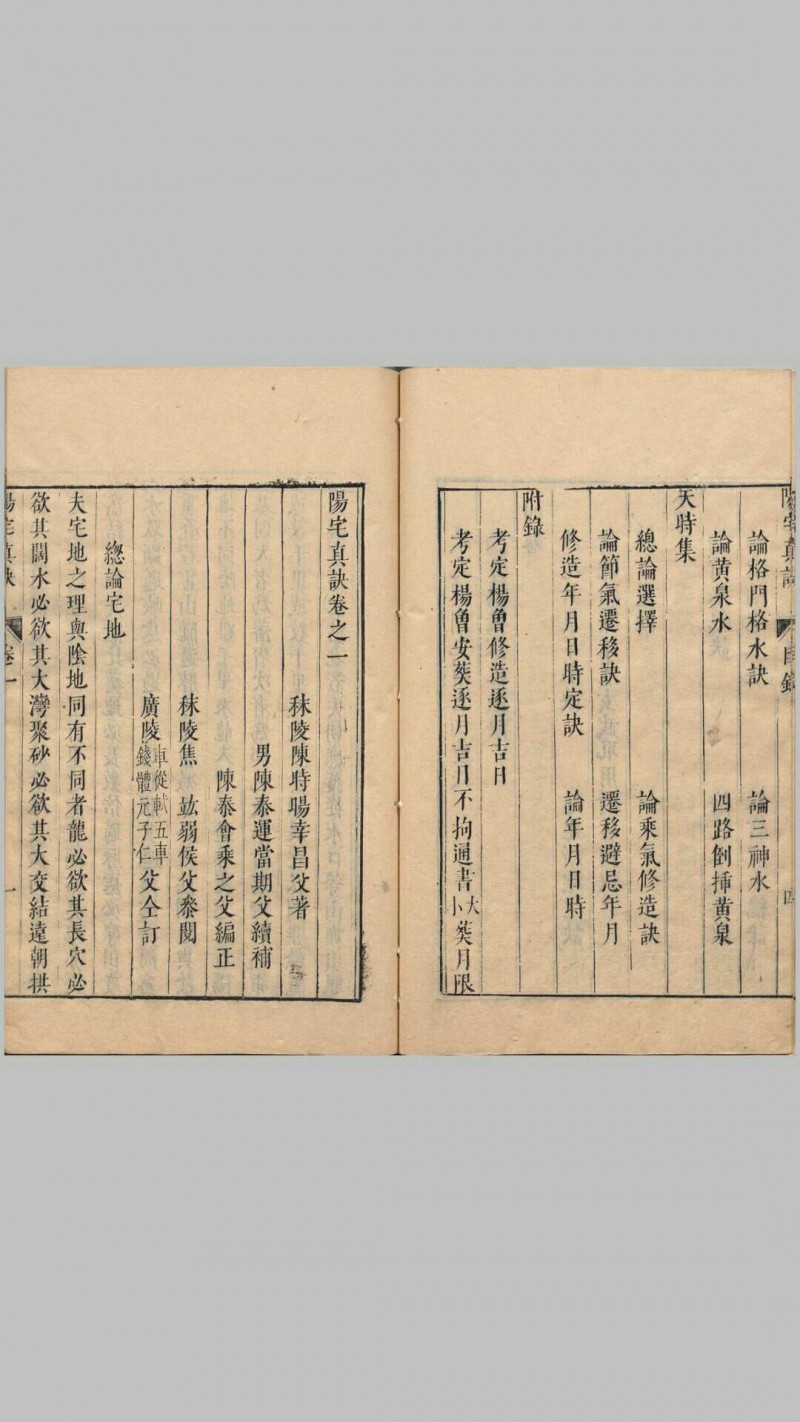 陽宅真訣 目錄 四
論格門格水訣 論三神水
論黃泉水 四路倒插黃泉
天時集
總論選擇 論乘氣修造訣
論節氣遷移訣 遷移避忌年月
修造年月日時定訣 論年月日時
附錄
考定楊曾修造逐月吉日
考定楊曾安葬逐月吉日不拘通書大小葬月限
陽宅真訣卷之一
秣陵陳時暘幸昌父著
男陳泰運當期父續補
陳泰會乘之父編正
秣陵焦竑弱侯父叅閱
廣陵車從軾五車錢體元子仁父仝訂
總論宅地
夫宅地之理與陰地同有不同者龍必欲其長穴必
欲其闊水必欲其大灣聚砂必欲其大交結遠朝拱
陽宅真訣 卷一 一